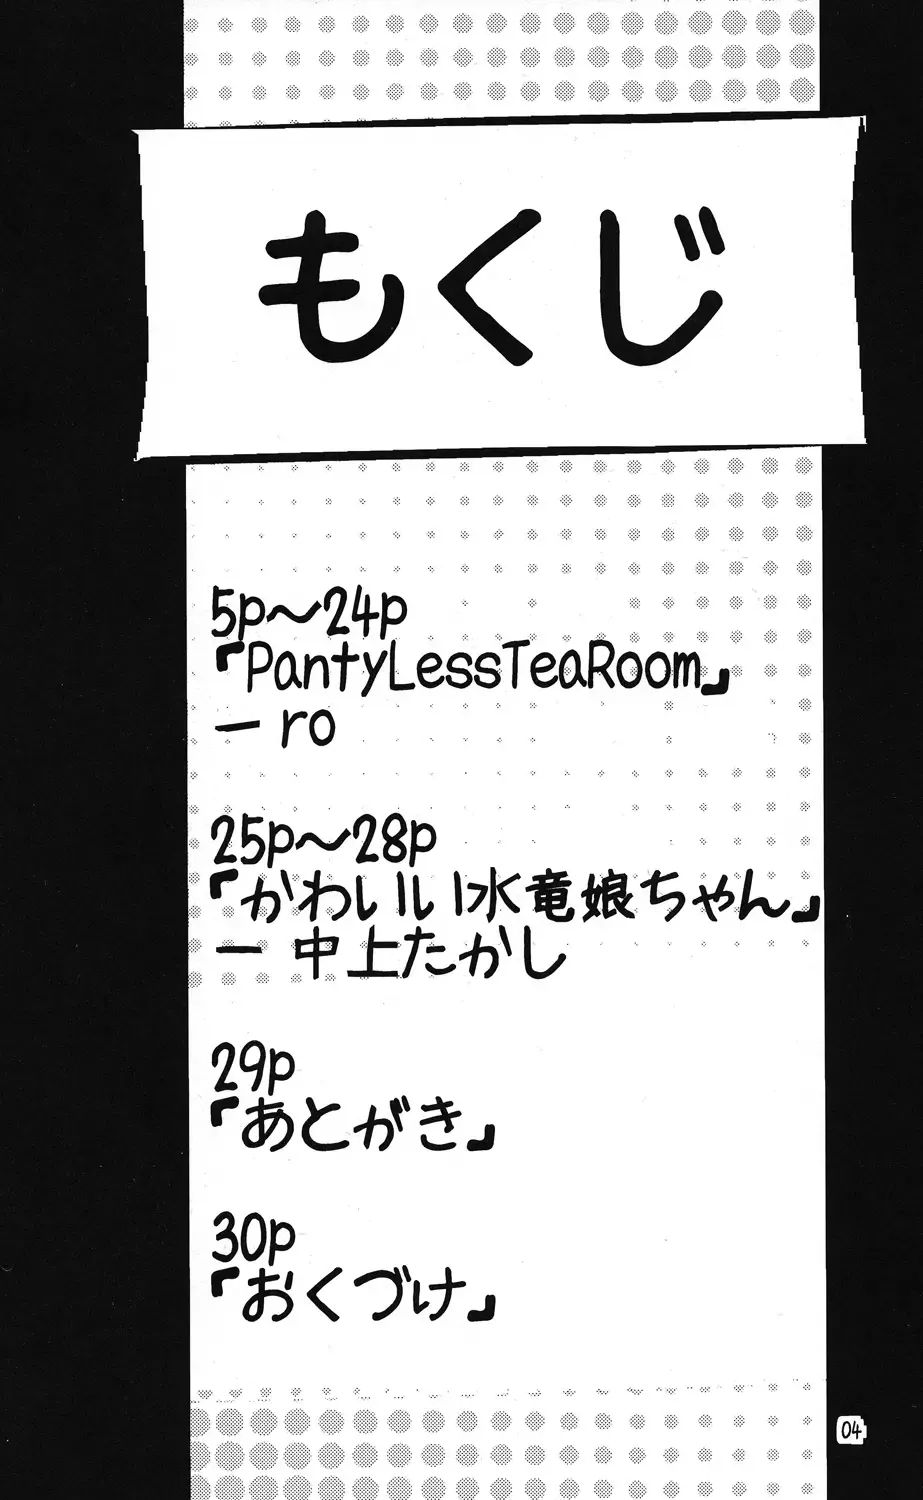 もくじ
5p～24p
『PantyLessTeaRoom』
― ro
25p～28p
『かわいい水竜娘ちゃん』
― 中上たかし
29p
『あとがき』
30p
『おくづけ』
04